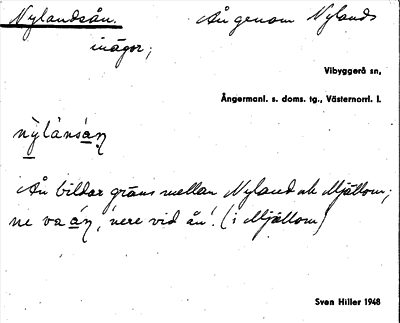 Nylandsån. Ån genom Nylands
inägor;
Vibyggerå sn,
Ångermanl. s. doms. tg., Västernorrl. l.
nỳlànsáɳ
Ån bildar gräns mellan Nyland ok Mjällom;
ne va áɳ, 'nere vid ån'. (i Mjällom)
Sven Hiller 1948